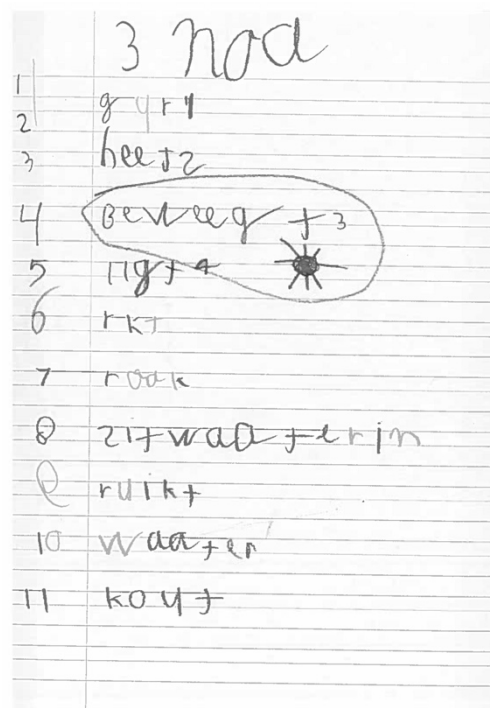 3 nod
1
2 gury
3 heet 2
4 Beweegt 3
5 ngt 4
6 rkt
7 rook
8 zitwaaterin
9 ruikt
10 waater
11 kout